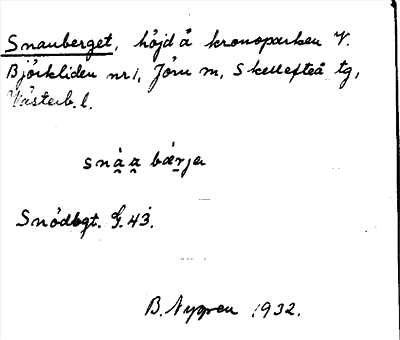 Snauberget, höjd å kronoparken V.
Björkliden nr 1, Jörn m, Skellefteå tg,
Västerb. l.
snå̀ a̯ bǽrjer
Snödbgt. G. 43.
B. Nygren 1932.